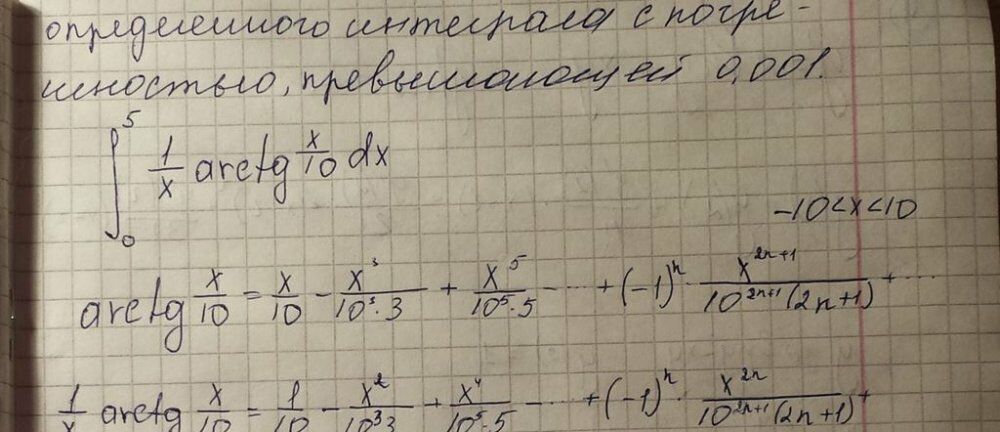 определенного интеграла с погре-
шностью, превышающей 0,001.
∫₀⁵ 1/x arctg x/10 dx
-10<x<10
arctg x/10 = x/10 - x³/(10³·3) + x⁵/(10⁵·5) - ... + (-1)ⁿ · x²ⁿ⁺¹/(10²ⁿ⁺¹(2n+1)) + ...
1/x arctg x/10 = 1/10 - x²/(10³3) + x⁴/(10⁵·5) - ... + (-1)ⁿ · x²ⁿ/(10²ⁿ⁺¹(2n+1)) +